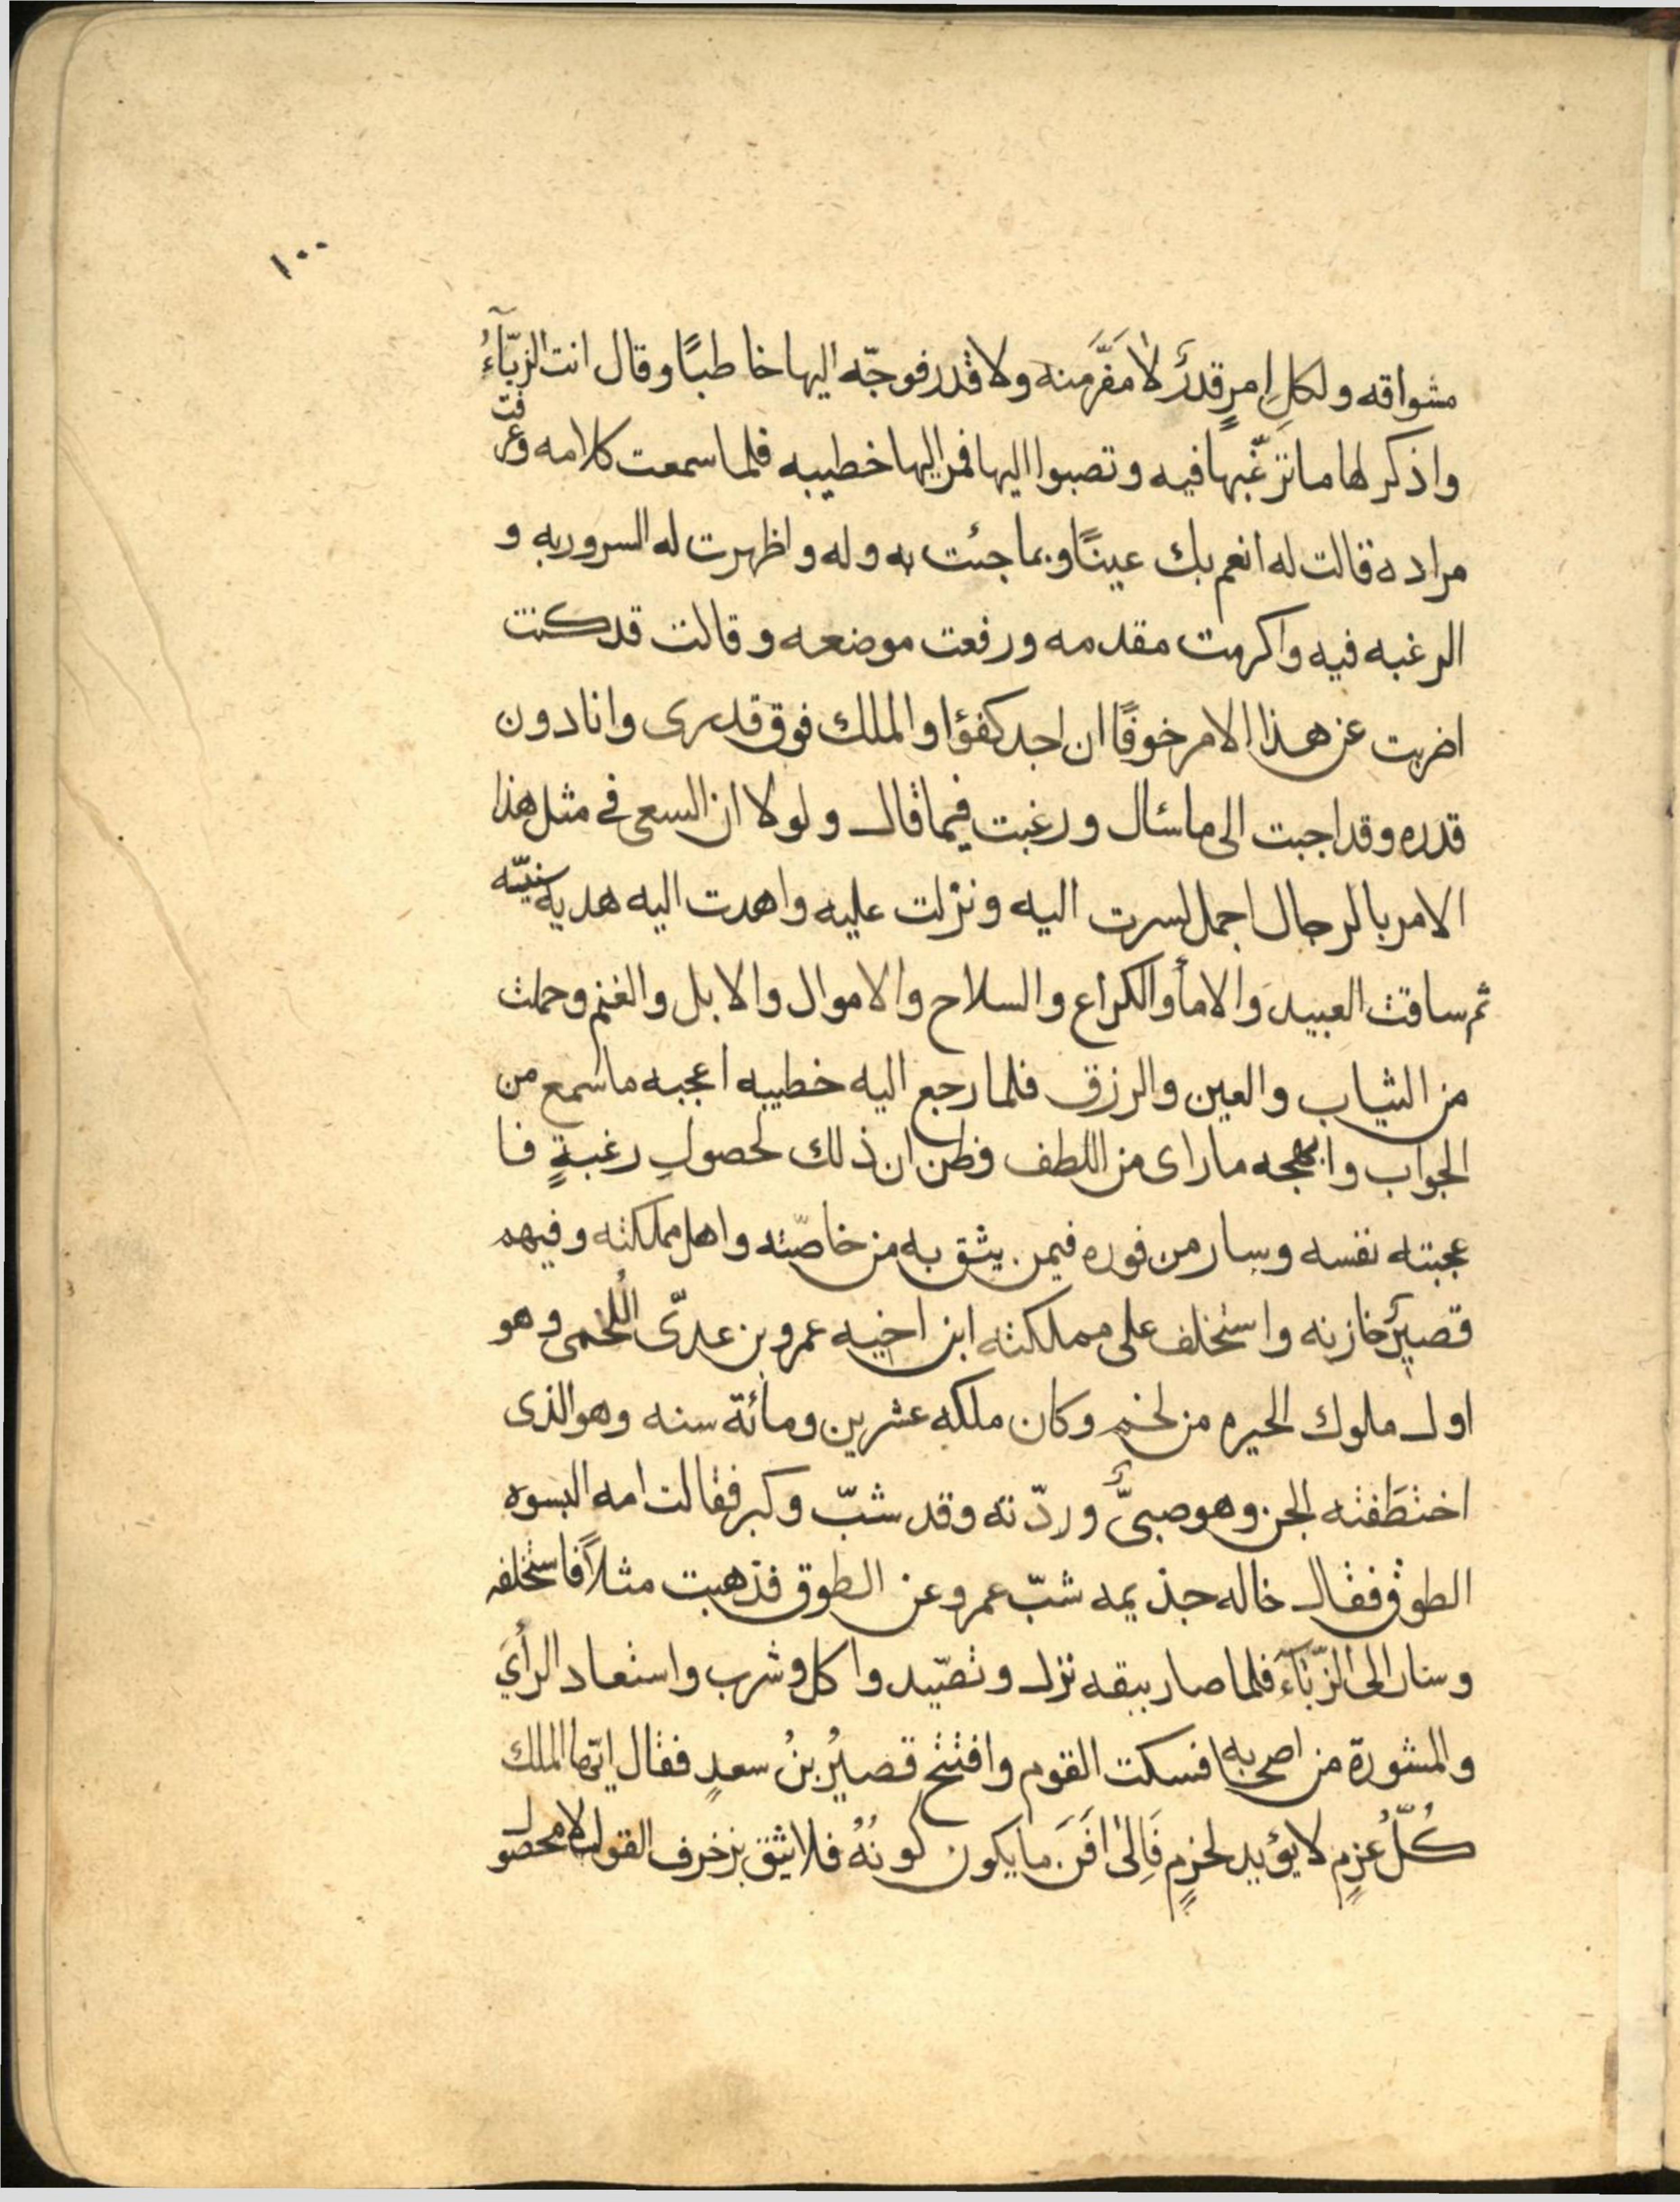 ١٠٠
مشواقه ولكلِ امرٍ قدرٌ لا مَفَرَّ منه ولا قدر فوجّه اليها خاطبًا وقال انت الزبّآءُ
واذكر لها ما ترغّبها فيه وتصبوا اليها فمر اليها خطيبه فلما سمعت كلامه وعرفت
مراده قالت له انعم بك عينًا وبما جئت به وله واظهرت له السرور به و
الرغبه فيه واكرمت مقدمه ورفعت موضعه وقالت قد كنت
اضربت عن هذا الامر خوفًا ان اجد كفؤا والملك فوق قدرى وانا دون
قدره وقد اجبت الى ما سئال ورغبت فيما قال ولولا ان السعى فى مثل هذا
الامر بالرجال اجمل لسرت اليه ونزلت عليه واهدت اليه هديه سنيّه
ثم ساقت العبيد والامأ والكراع والسلاح والاموال والابل والغنم وحملت
من الثياب والعين والرزق فلما رجع اليه خطيبه اعجبه ما سمع من
الجواب وابهجه ما راى من اللطف وظن ان ذلك لحصولِ رغبةٍ فا
عجبته نفسه وسار من فوره فيمن يثق به من خاصّته واهل مملكته وفيهم
قصيرٌ خازنه واستخلف على مملكته ابن اخيه عمرو بن عدىّ اللُخمى وهو
اول ملوك الحيره من لخم وكان ملكه عشرين ومائة سنه وهو الذى
اختطَفته الجن وهو صبىٌّ وردّته وقد شبّ وكبر فقالت امه البسوه
الطوق فقال خاله جذيمه شبّ عمرو عن الطوق فذهبت مثلاً فاستخلفه
وسار الى الزّبّآءَ فلما صار ببقه نزل وتصّيد واكل وشرب واستعاد الرأىَ
والمشورة من اصحابه فسكت القوم وافتتح قصيُر بنُ سعدٍ فقال ايّها الملك
كُلّ عزمٍ لا يؤيد لحزمٍ فَالِىٰ افَنَ ما يكون كونُهُ فلا يثق بزخرف القول لا محصول